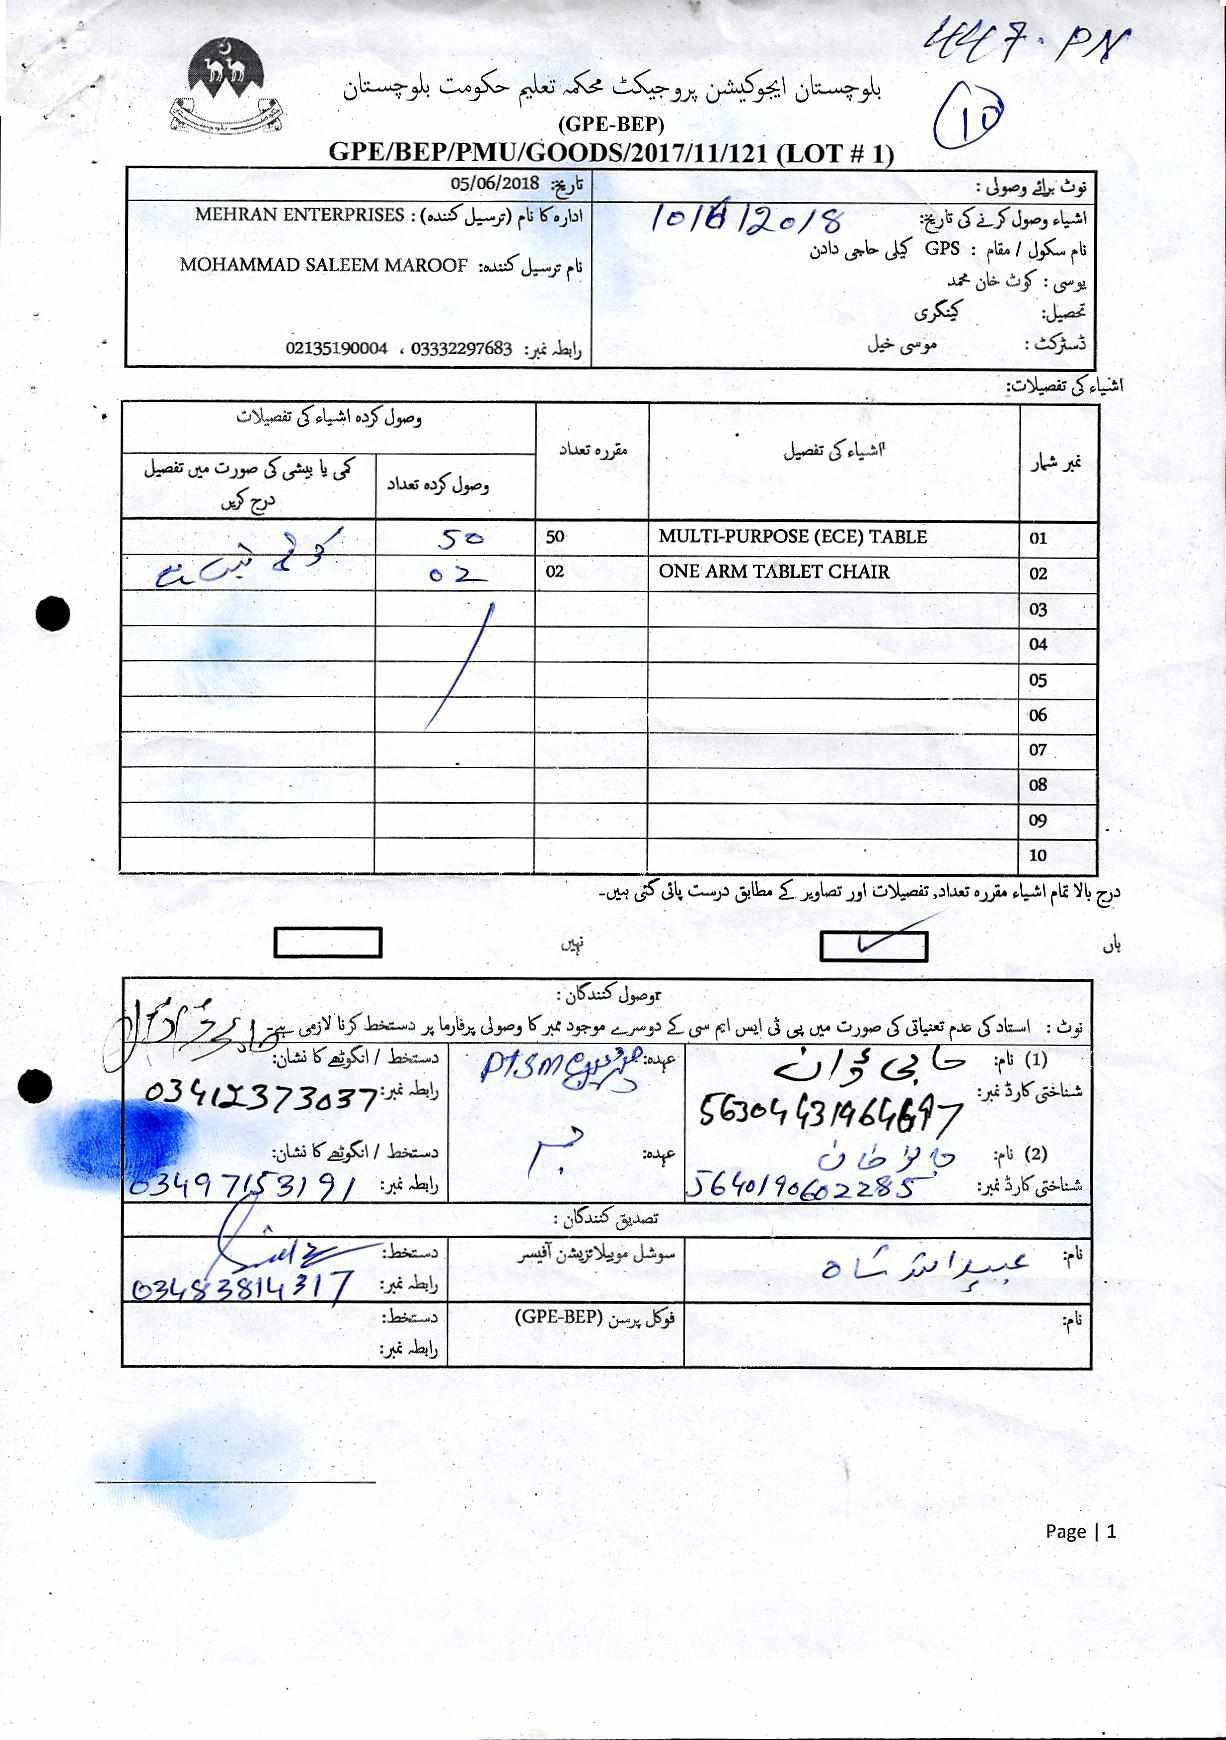 447. PN
10
بلوچستان ایجوکیشن پروجیکٹ محکمہ تعلیم حکومت بلوچستان
(GPE-BEP)
GPE/BEP/PMU/GOODS/2017/11/121 (LOT # 1)
نوٹ برائے وصولی :
اشیاء وصول کرنے کی تاریخ: 10/6/2018
نام سکول / مقام : GPS کیلی حاجی دادن
یوسی : کوٹ خان محمد
تحصیل: کینگری
ڈسٹرکٹ : موسی خیل
تاریخ: 05/06/2018
ادارہ کا نام (ترسیل کنندہ) : MEHRAN ENTERPRISES
نام ترسیل کنندہ: MOHAMMAD SALEEM MAROOF
رابطہ نمبر: 03332297683 ، 02135190004
اشیاء کی تفصیلات:
نمبر شمار اشیاء کی تفصیل مقررہ تعداد وصول کردہ اشیاء کی تفصیلات
وصول کردہ تعداد کمی یا بیشی کی صورت میں تفصیل درج کریں
01 MULTI-PURPOSE (ECE) TABLE 50 50
02 ONE ARM TABLET CHAIR 02 02
03
04
05
06
07
08
09
10
درج بالا تمام اشیاء مقررہ تعداد, تفصیلات اور تصاویر کے مطابق درست پائی گئی ہیں۔
ہاں نہیں
وصول کنندگان :
نوٹ : استاد کی عدم تعیناتی کی صورت میں پی ٹی ایس ایم سی کے دوسرے موجود ممبر کا وصولی پرفارما پر دستخط کرنا لازمی ہے۔
(1) نام: حاجی عہدہ: PTSMC دستخط / انگوٹھے کا نشان:
شناختی کارڈ نمبر: رابطہ نمبر: 03412373037
(2) نام: خان عہدہ: ممبر دستخط / انگوٹھے کا نشان:
شناختی کارڈ نمبر: 5640190602285 رابطہ نمبر: 03497153191
تصدیق کنندگان :
نام: عبید اللہ شاہ سوشل موبیلائزیشن آفیسر دستخط:
رابطہ نمبر: 03483814317
نام: فوکل پرسن (GPE-BEP) دستخط:
رابطہ نمبر:
Page | 1